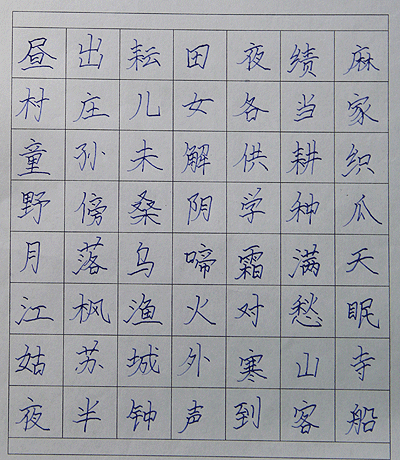 昼出耘田夜绩麻
村庄儿女各当家
童孙未解供耕织
野傍桑阴学种瓜
月落乌啼霜满天
江枫渔火对愁眠
姑苏城外寒山寺
夜半钟声到客船